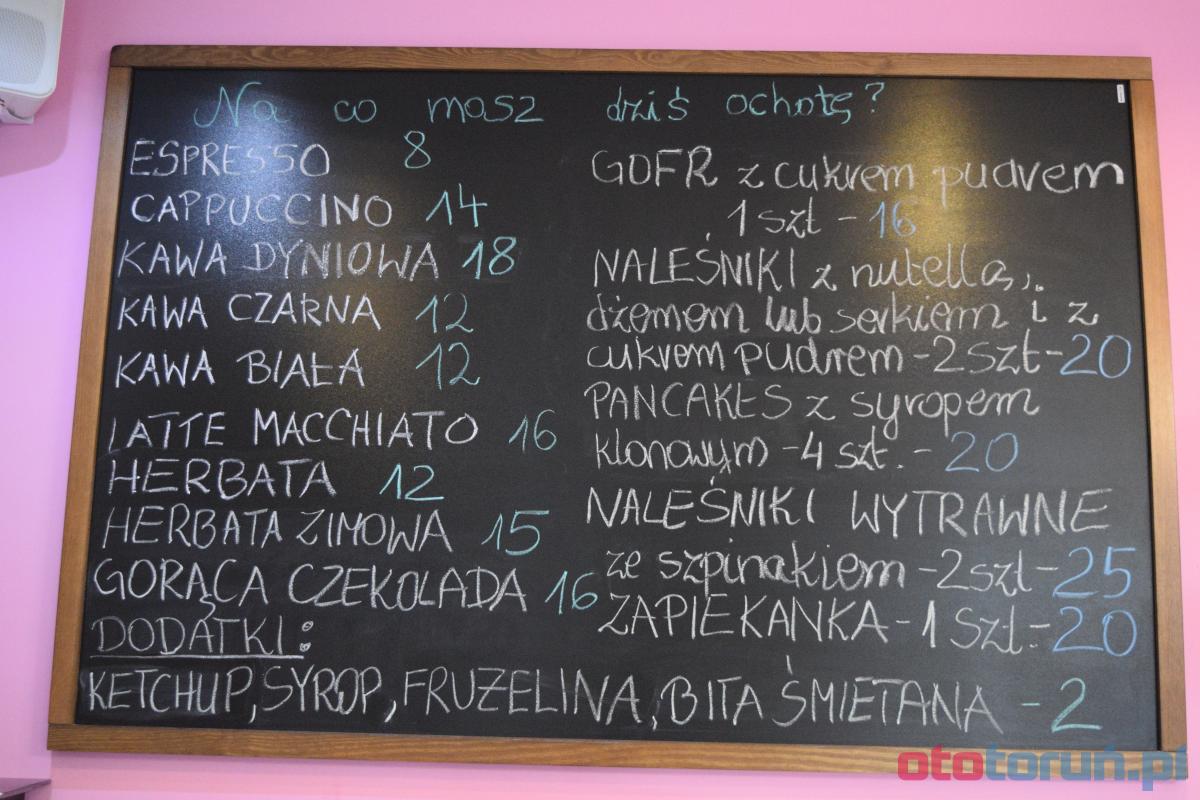 Na co masz dziś ochotę?
ESPRESSO 8
CAPPUCCINO 14
KAWA DYNIOWA 18
KAWA CZARNA 12
KAWA BIAŁA 12
LATTE MACCHIATO 16
HERBATA 12
HERBATA ZIMOWA 15
GORĄCA CZEKOLADA 16
GOFR z cukrem pudrem
1 szt - 16
NALEŚNIKI z nutellą,
dżemem lub serkiem i z
cukrem pudrem - 2 szt - 20
PANCAKES z syropem
klonowym - 4 szt. - 20
NALEŚNIKI WYTRAWNE
ze szpinakiem - 2 szt - 25
ZAPIEKANKA - 1 szt. - 20
DODATKI:
KETCHUP, SYROP, FRUŻELINA, BITA ŚMIETANA - 2
ototoruń.pl